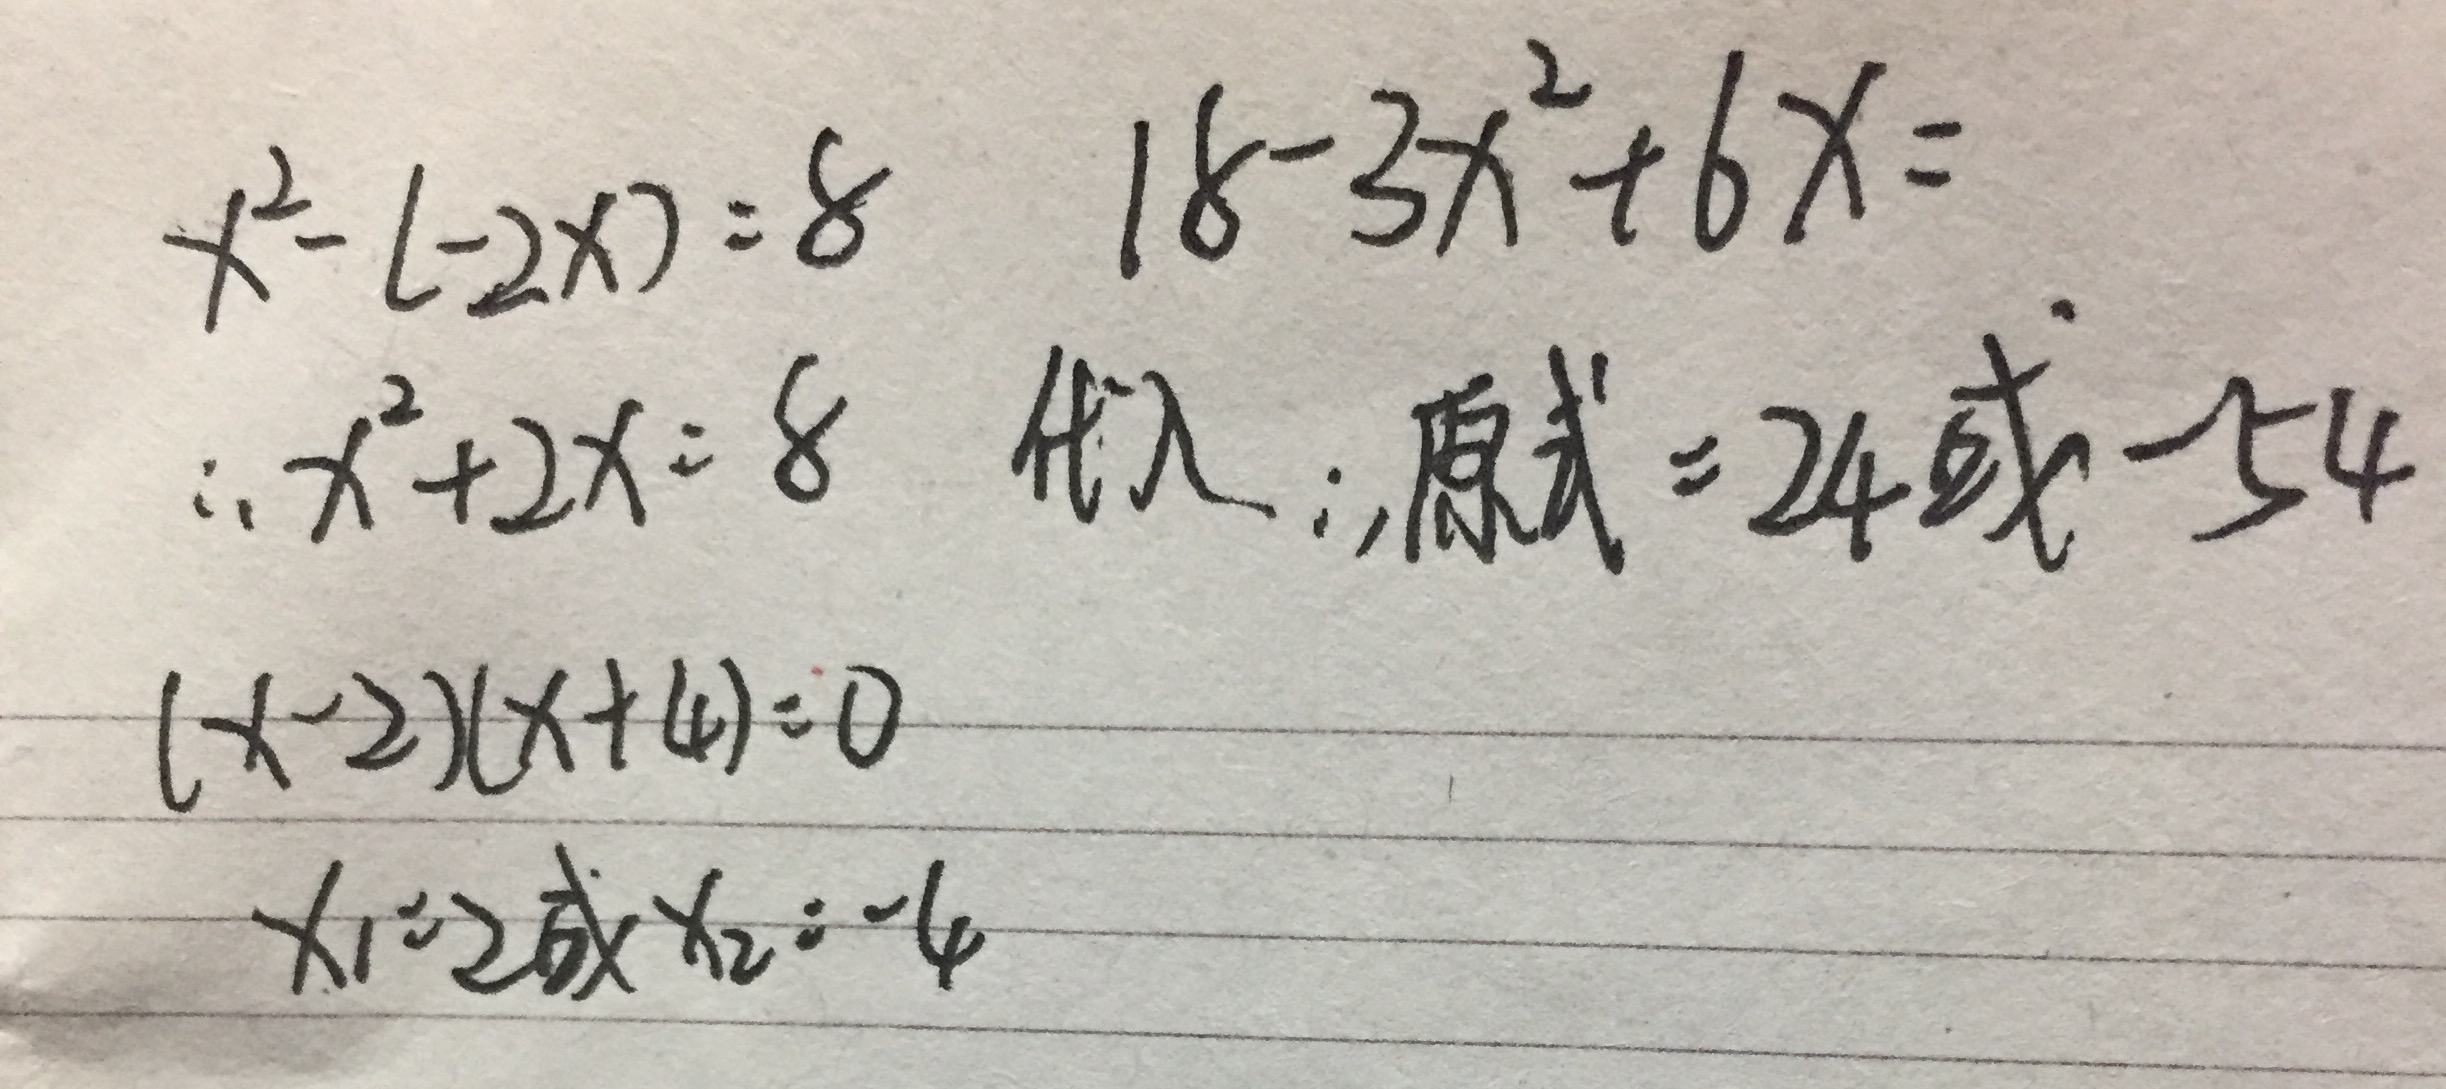 x²-(-2x)=8
∴x²+2x=8
(x-2)(x+4)=0
x₁=2或x₂=-4
18-3x²+6x=
代入∴原式=24或-54